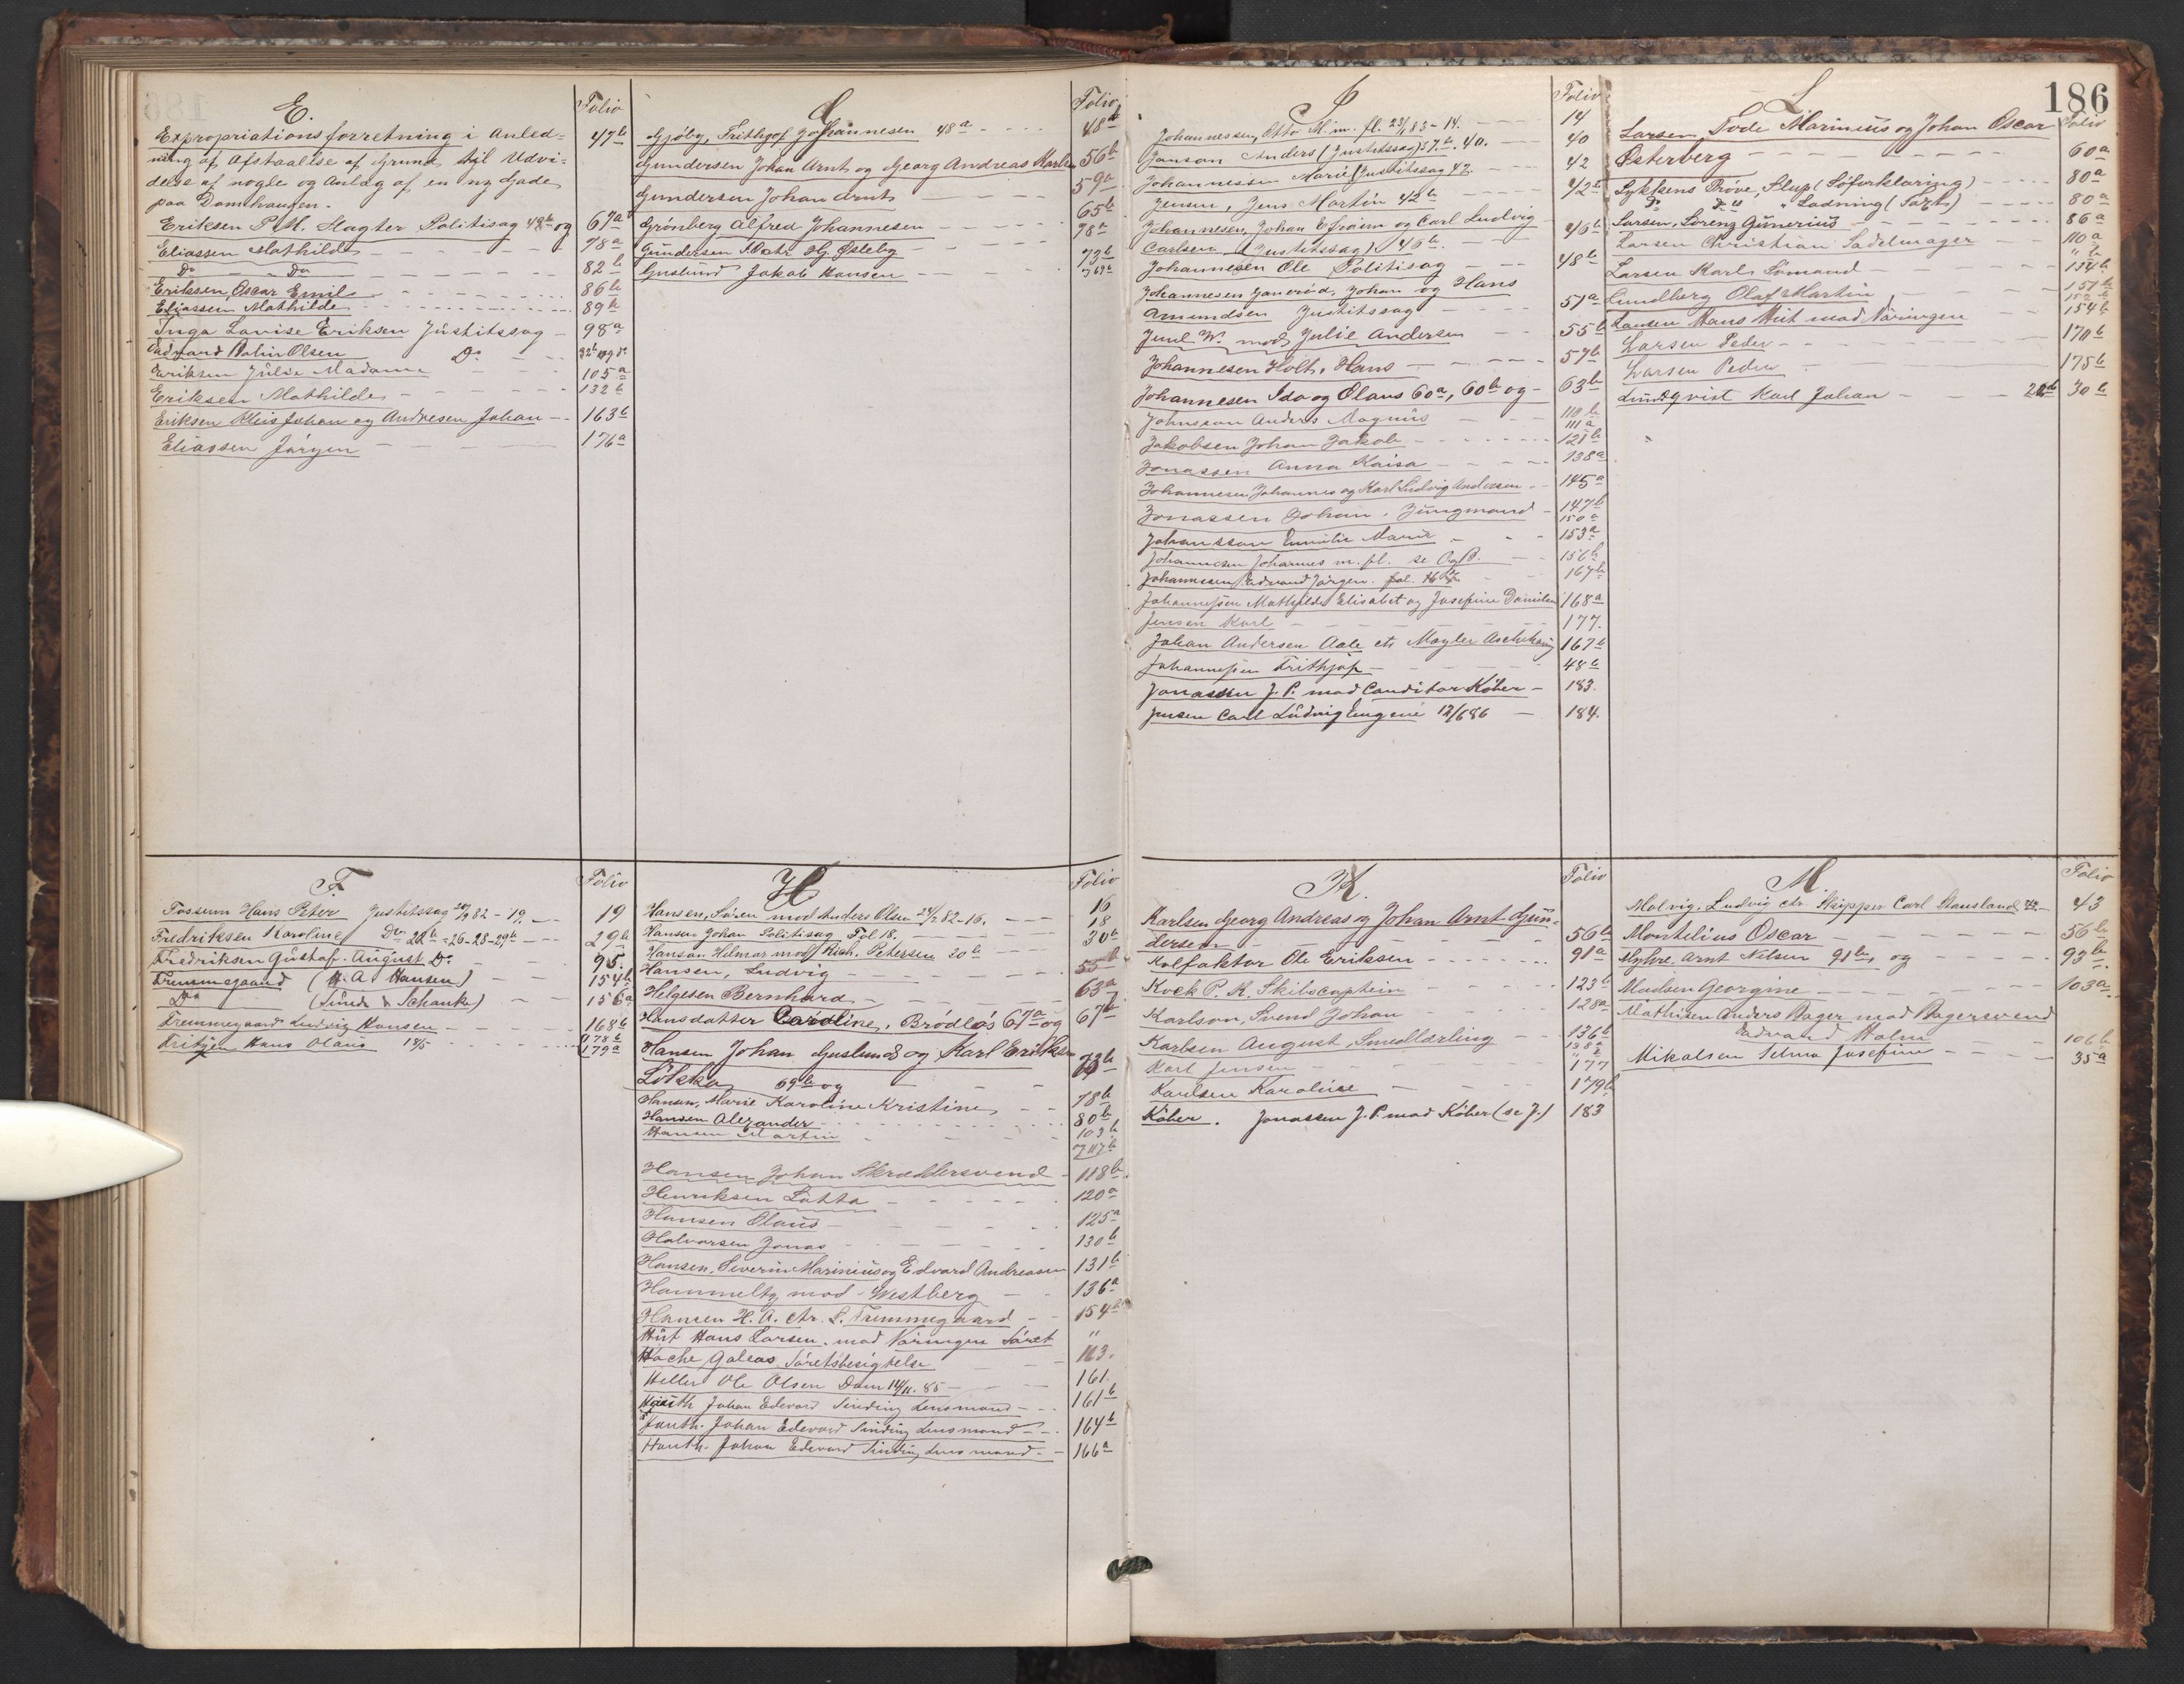 186
E.
Folio
Expropriationsforretning i Anled=
47b
ning af Afstaaelse af Grund til Udvi=
delse af nogle og Anlæg af en ny Gade
paa Damhaugen.
Eriksen P. M. Slagter Politisag 49b og 67a
Eliassen Mathilde 78a
Do Do 82b
Eriksen, Oscar Emil 86b
Eliassen Mathilde 89b
Inga Lovise Eriksen Justitssag 98a
Edvard Bolin Olsen Do
Eriksen Julie Madame 105a
Eriksen Mathilde 132b
Eriksen Johan og Andresen Johan 163b
Eliassen Jörgen 176a
G
Folio
Gjøby, Frithjof Johannesen 48a 48b
Gundersen Johan Arnt og Georg Andreas Karlsen 56b
59a
Gundersen Johan Arnt 65b
Grönberg Alfred Johannesen 78a
Gundersen Østeby 73b
Guslund Jakob Hansen 69b
F.
Folio
Fossum Hans Peter Justitssag 20/9 82 - 19. 19
Fredriksen Karoline Do 22b - 26 - 28 - 29b 29b
Fredriksen Gustaf August Do 95.
Fremmegaard (H. A. Hansen) 154b
Do (Lunde & Schanke) 156a
Fremmegaard Ludvig Hansen 168b
178b
Hans Olaus 18/5 179a
H
Folio
16
Hansen, Sören mod Anders Olsen 24/2 82 - 16. 18
Hansen Johan Politisag Fol 18.
Hanson Hilmar mod Rich. Petersen 30b 30b
Hansen, Ludvig 55b
Helgesen Bernhard 63a
Hansdatter Caroline, Brödlös 67a og 67b
Hansen Johan Guslund og Karl Eriksen
Lötska 69b og 73b
Hansen, Marie Karoline Kristine 78b
Hansen Alexander 80b
Hansen Martin 103b
117b
Hansen Johan Skrædersvend 118b
Henriksen Lotta 120a
Hansen Olaus 125a
Halvorsen Jonas 130b
Hansen, Severin Marinius og Edvard Andreasen 131b
Hammeltz mod Westberg 136a
Hansen H. A. ctr. L. Fremmegaard 154b
Hüt Hans Larsen mod Næringen Söret "
Hache, Galeas Söretsbesigtelse 163.
Heller Ole Olsen Dom 14/11. 85 161.
Hjorth Johan Edevard Sinding Lensmand 161b
Hauth. Johan Edevard Sinding Lensmand 164b
Hauth. Johan Edevard Sinding Lensmand 166a
J
Folio
Johannessen, Otto M. m. fl. 23/1 83 - 14. 14
Janson Anders (Justitssag) 37b. 40. 40
Johannessen Marie (Justitssag 42. 42
Jensen, Jens Martin 42b 42b
Johannesen, Johan Efraim og Carl Ludvig
Carlsen (Justitssag) 46b. 46b
Johannesen Ole Politisag 48b
Johannesen Ganerød, Johan og Hans
Amundsen Justitssag 51a
Juul W. mod Julie Andersen 55b
Johannesen Holt, Hans 57b
Johannesen Ida og Olaus 60a, 60b og 63b
Johnson Anders Magnus 110b
111a
Jakobsen Johan Jakob 121b
Jonassen Anna Kaisa 138a
Johannesen Johannes og Karl Ludvig Andersen 145a
Jonassen Johan, Jungmand 147b
150a
Johansson Emilie Marie 153a
Johannesen Johannes m. fl. se O og P. 156b
Johannesen Edvard Jörgen. fol. 167b
Johannesen Mathilde Elisabet og Josefine Danielsen 168a
Jensen Karl 177.
Johan Andersen Aale ctr Mægler Aschehoug 167b
Johannesen Frithjof 48b
Jonassen J. P. mod Conditor Köber 183.
Jensen Carl Ludvig Eugene 12/6 86 184.
L
Folio
Larsen Tode Marinius og Johan Oscar
Østerberg 60a
Lykkens Pröve, Slup (Söforklaring) 80a
Do Do " Ladning (Söret) 80a
Larsen, Lorenz Gunerius 86a
Larsen Christian Sadelmager 110a
" b
Larsen Karl Sömand 134b
Lundberg Olaf Martin 151b
152b
Larsen Hans Hüt mod Näringen 154b
Larsen Peder 170b
Larsen Peder 175b
Lundqvist Karl Johan 30b
K.
Folio
Karlsen Georg Andreas og Johan Arnt Gun-
dersen 56b
Kolfaktor Ole Eriksen 91a
Kock P. K. Skibscaptein 123b
Karlson, Svend Johan 128a
Karlsen August, Smedlærling 136b
138a
Karl Jensen 177
Karlsen Karoline 179b
Köber. Jonassen J. P. mod Köber (se J.) 183
M.
Folio
Malvig, Ludvig ctr. Skipper Carl Stausland 43 43
Montelius Oscar 56b
Myhre, Arnt Nilsen 91b, og 93b.
Madsen Georgine 103a.
Mathisen Anders Bager mod Bagersvend
Edvard Holm 106b
Mikalsen Selma Josefine 35a